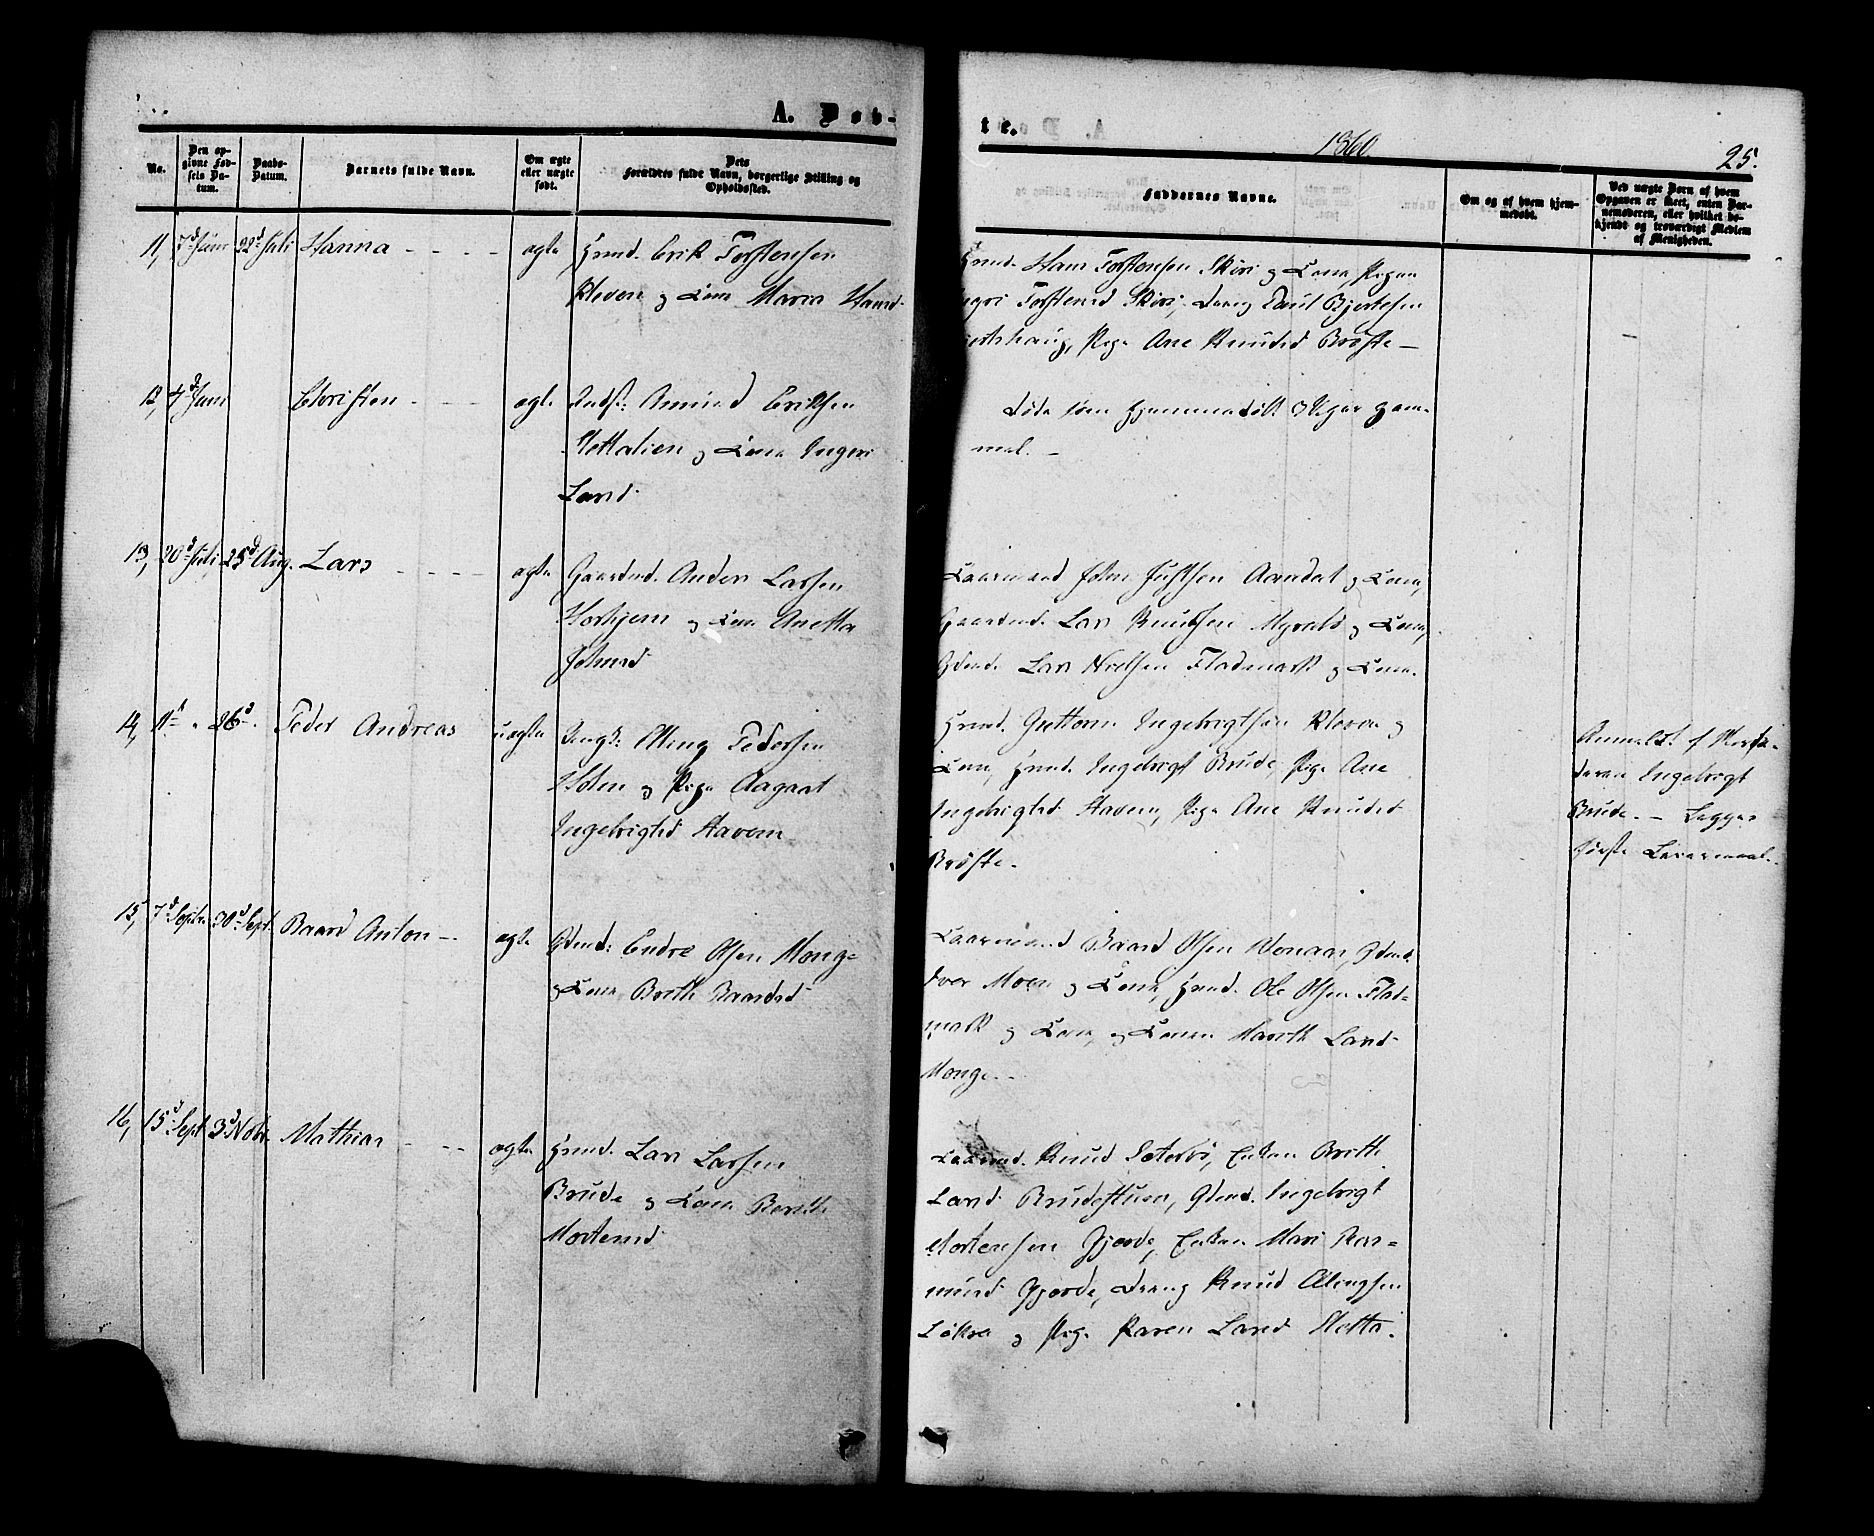 A. Døb-
te.
1860.
25.
No.
Den op-
givne Fød-
sels Da-
tum.
Daabs-
Datum.
Barnets fulde Navn.
Om ægte
eller uægte
født.
Dets
Forældres fulde Navn, borgerlige Stilling og
Opholdssted.
Faddernes Navne.
Om og af hvem hjem-
medøbt.
Ved uægte Børn af hvem
Opgaven er skeet, enten Bar-
nemoderen, eller hvilket be-
kjendt og troværdigt Medlem
af Menigheden.
11, 7d Juni 22d Juli Hanna - - - - ægte Hmd. Erik Torstensen
Kleven og Kone Maria Hansd.
Hmd. Hans Torstensen Skiri og Kone, Pigen
Torstensd Skiri, Dreng Paul Bjertesen
Pige Ane Knudsd Brøste -
12, 4d Juni Christen - - - ægte Indst: Amund Eriksen
og Kone Ingeri
Larsd.
Døde som hjemmedøbt Uger gam-
mel. -
13, 20d Juli 25d Aug. Lars - - - - ægte Gaardmd. Anders Larsen
Horhjem og Kone Anetta
Johnsd
Laarmand John Justsen Aandal og Kone,
Gaardmd. Lars Knudsen Myrabø og Kone,
Gdmd. Lars Nielsen Flademark og Kone.
14, 11d " 26d. Peder Andreas uægte Ungk: Elling Pedersen
Holm og Pige Aagaat
Ingebrigtsd Havem
Hmd. Guttorm Ingebrigtsen Kleven og
Kone, Hmd. Ingebrigt Brude, Pige Ane
Ingebrigtsd Havem, Pige Ane Knudsd
Brøste.
Anmeldt af
Ingebrigt
Brude. - Begges
første Leiermaal.
15, 7d Septbr. 30d Sept. Baard Anton - ægte Gdmd: Endre Olsen Monge
og Kone Brith Baardsd
Laarmand Baard Olsen Venaas, Gdmd.
Iver Moen og Kone, Hmd. Ole Olsen Flad-
mark og Kone, og Konen Marith Larsd
Monge. -
16, 15d Sept 3d Nobr. Mathias - - - - ægte Hmd. Lars Larsen
Brude og Kone Berith
Mortensd
Laarmd. Knud Sæterbø, Enken Brith
Larsd Brudestuen, Gdmd. Ingebrigt
Mortensen Gjerde, Enken Mari Ras-
musd Gjerde, Dreng Knud Ellingsen
Løkra og Pige Karen Larsd Sletta.